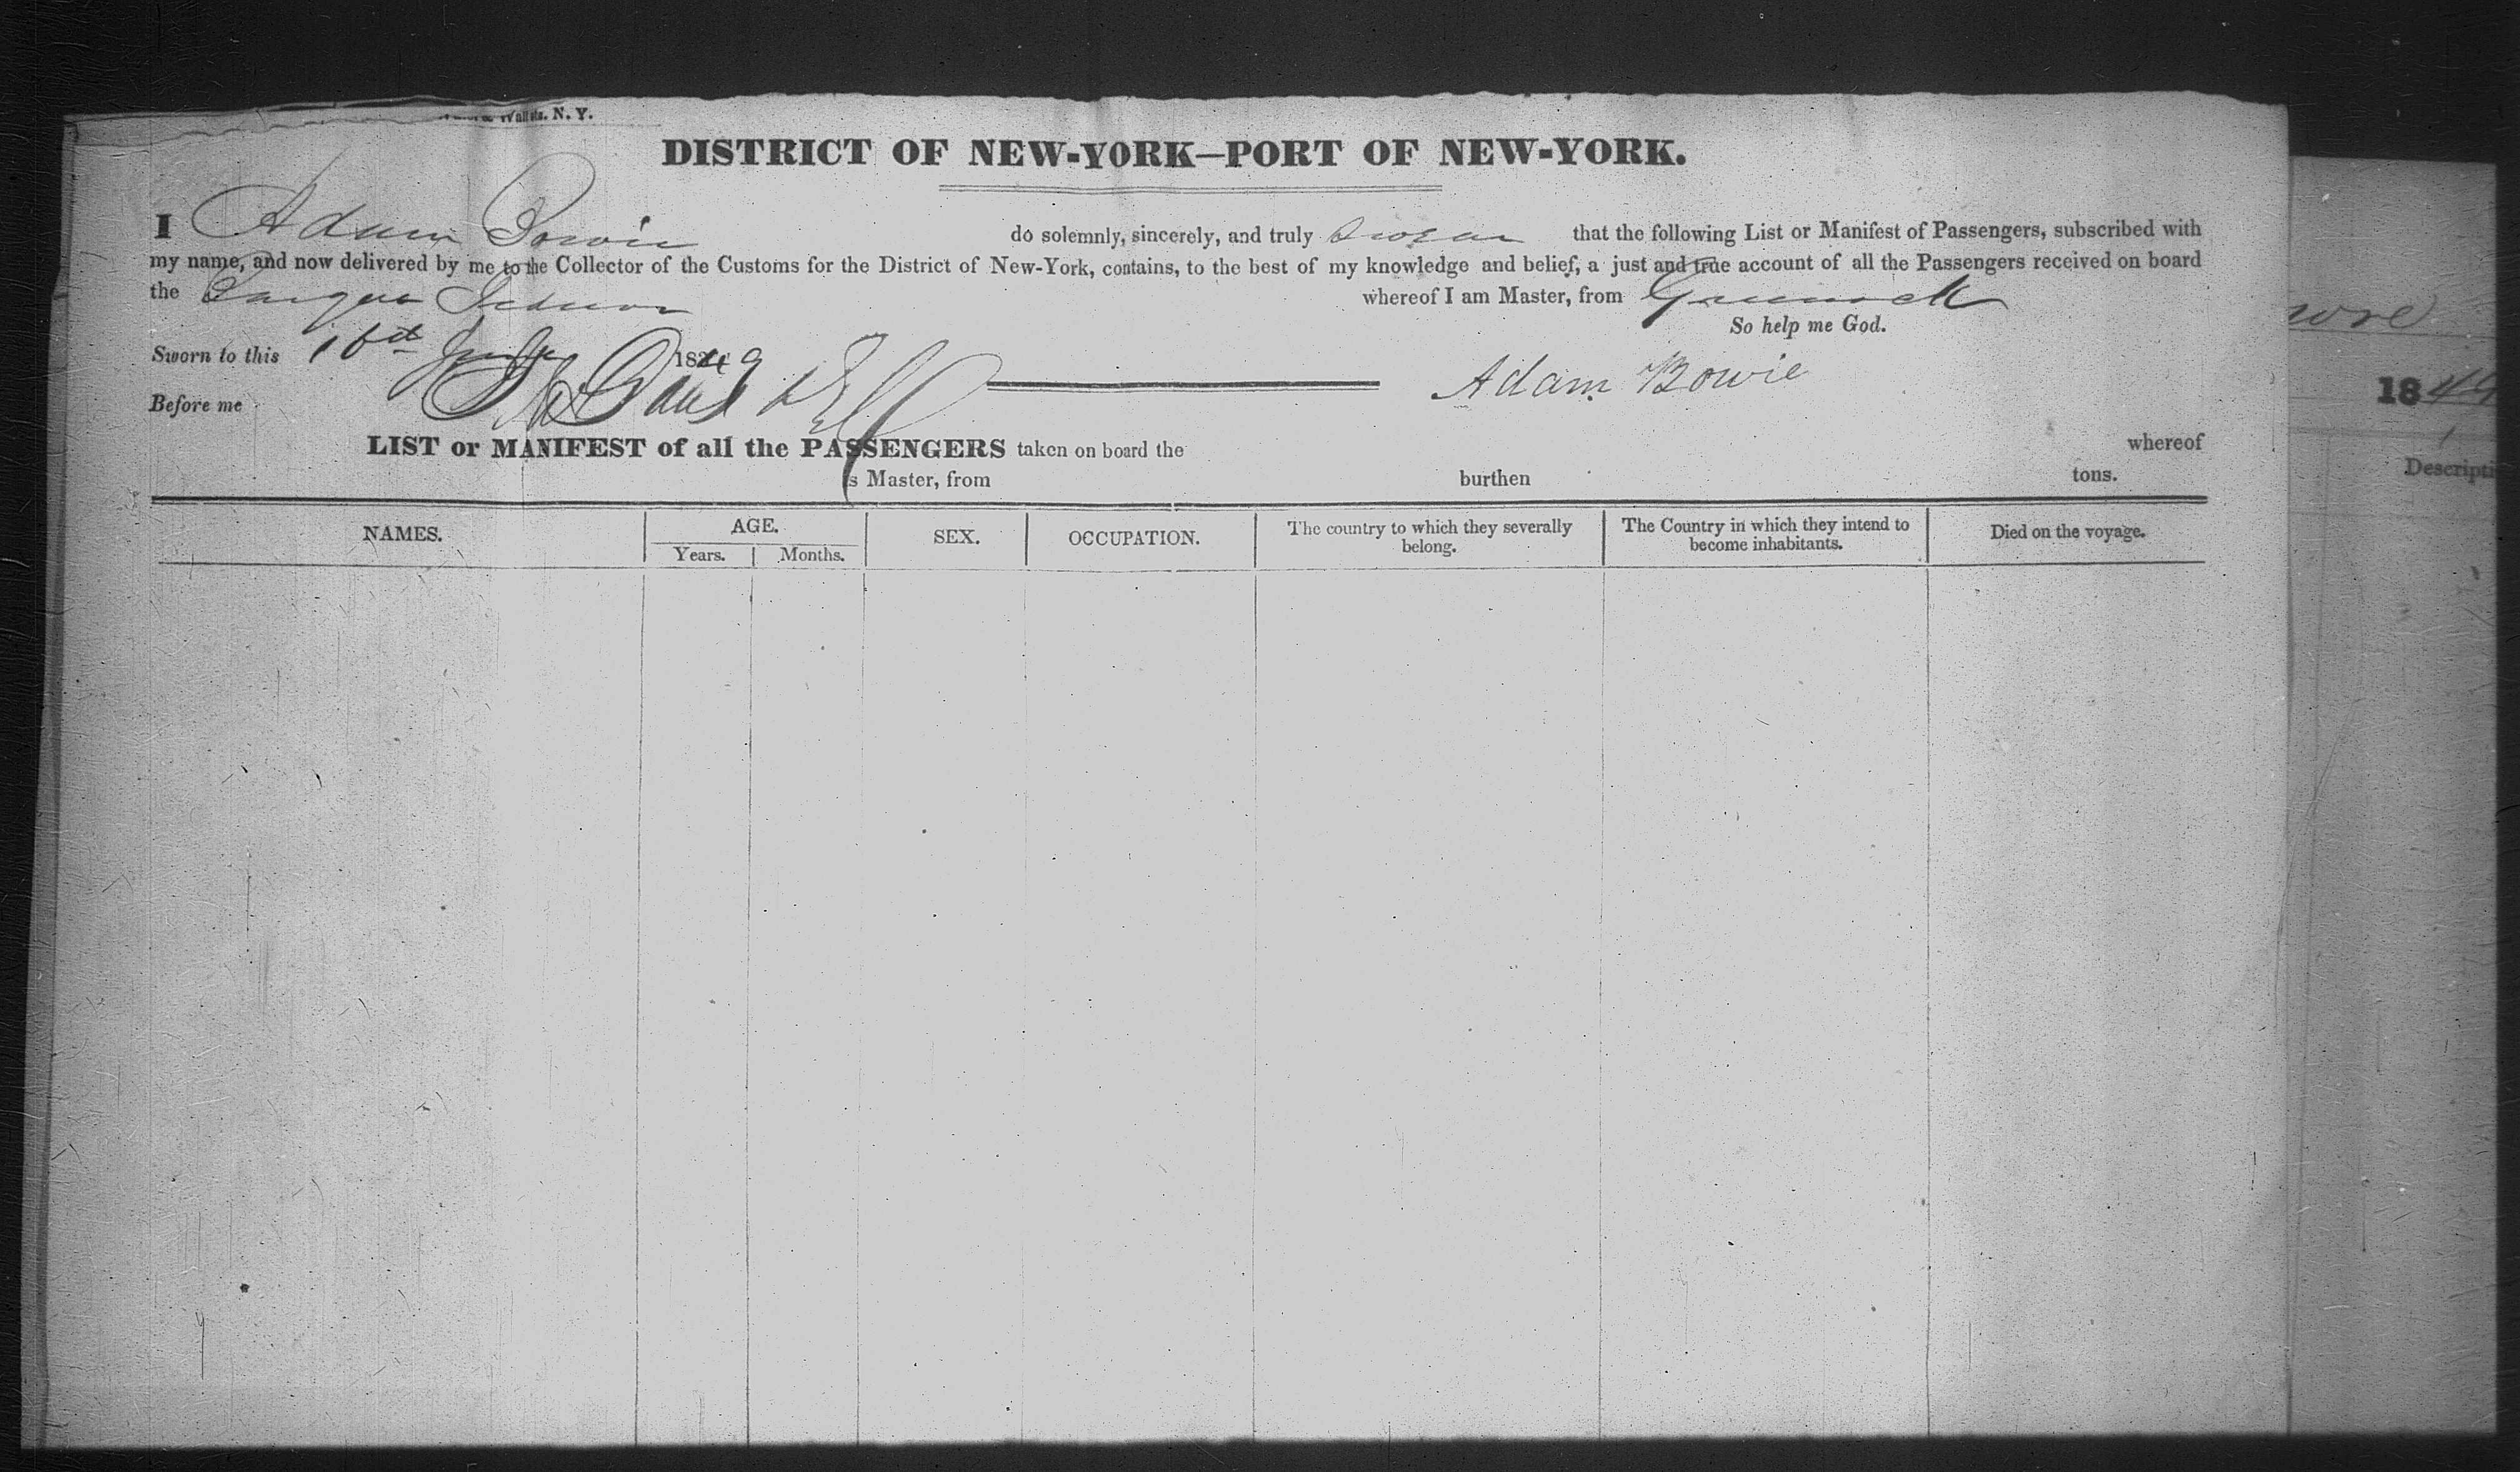 Wall sts. N. Y.
DISTRICT OF NEW-YORK—PORT OF NEW-YORK.
I Adam Bowie do solemnly, sincerely, and truly swear that the following List or Manifest of Passengers, subscribed with
my name, and now delivered by me to the Collector of the Customs for the District of New-York, contains, to the best of my knowledge and belief, a just and true account of all the Passengers received on board
the Barque whereof I am Master, from Greenock
So help me God.
Sworn to this 16th July 1849
Adam Bowie
Before me
LIST or MANIFEST of all the PASSENGERS taken on board the whereof
is Master, from burthen tons.
NAMES. AGE. SEX. OCCUPATION. The country to which they severally belong. The Country in which they intend to become inhabitants. Died on the voyage.
Years. Months.
1849
Descripti